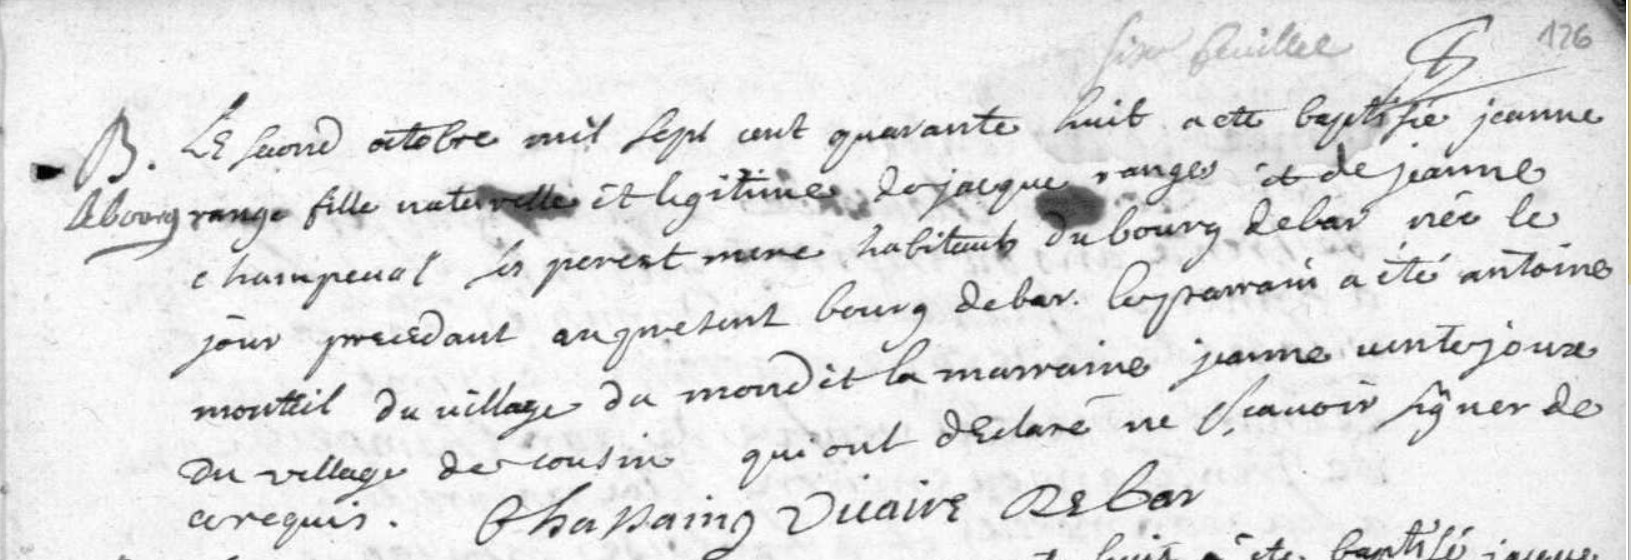 sixe feuillee 126
B. Le second octobre mil sept cent quarante huit a ete baptisée jeanne
le bourg range fille naturelle et legitime de jacque range et de jeanne
champeval ses pere et mere habitants du bourg de bar née le
jour precedant au present bourg de bar. le parrain a été antoine
monteil du village du mond et la marraine jeanne ventejoux
du village de cousin qui ont declaré ne sçavoir signer de
ce requis. Chassaing vicaire de bar
huit a ete baptisé jacque